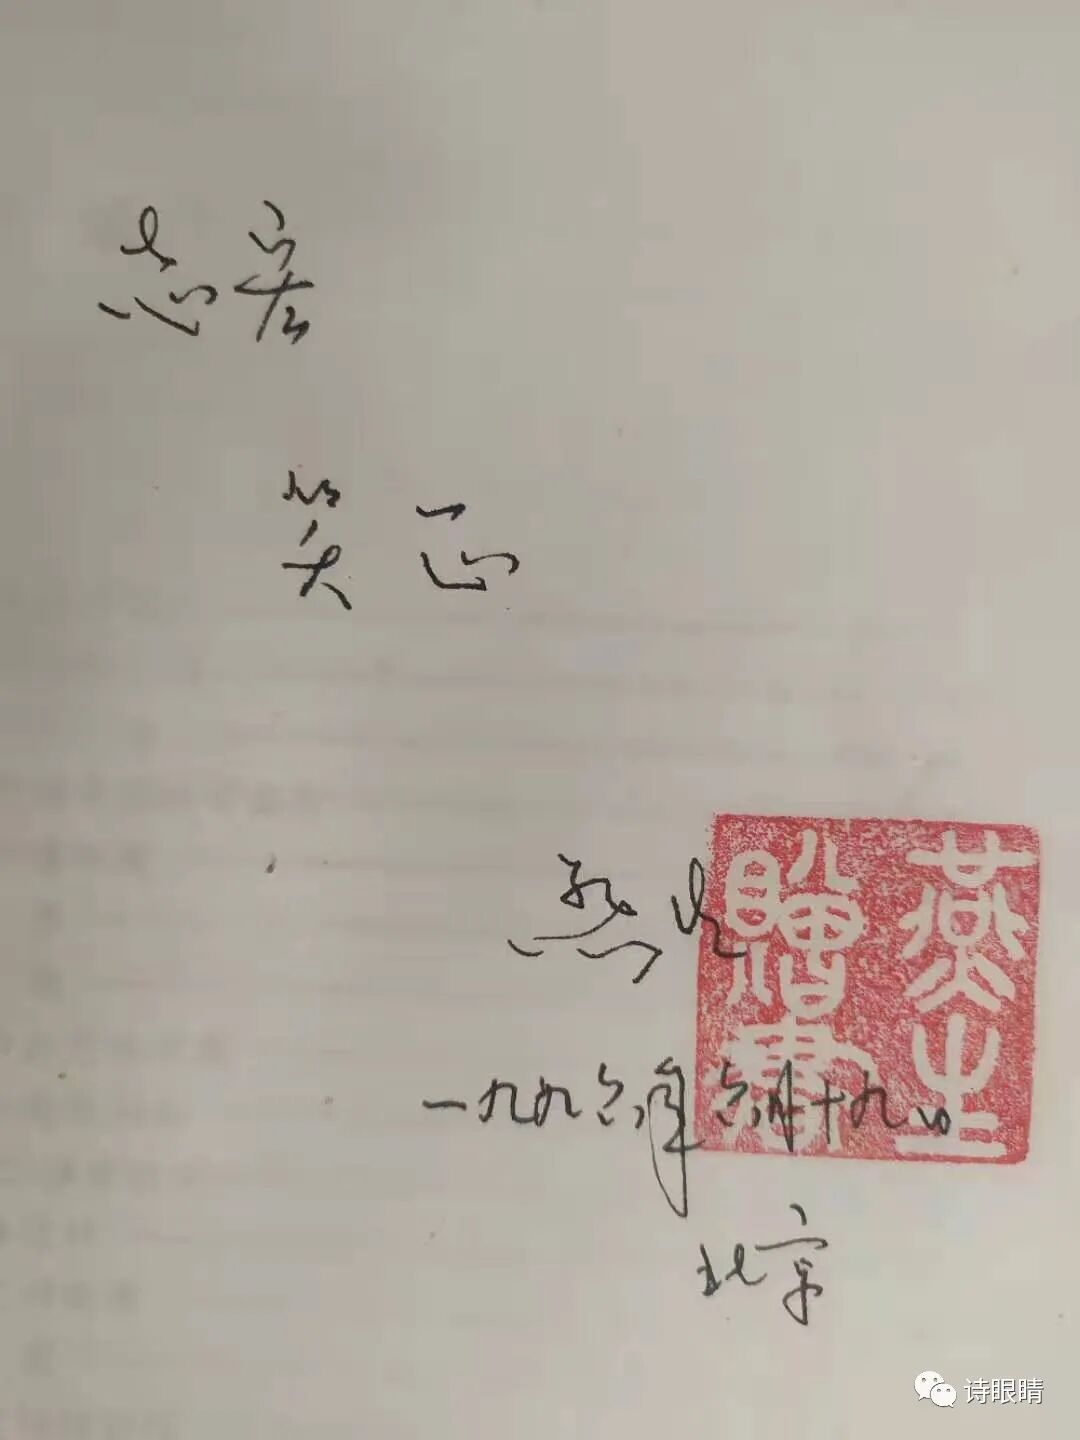 志宏
笑正
燕生
一九九六年六月十九日
北京
燕生
赠书
诗眼睛